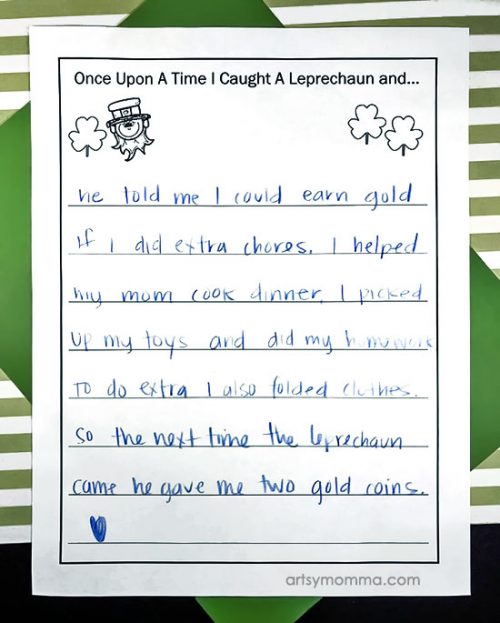 Once Upon A Time I Caught A Leprechaun and...
he told me I could earn gold
If I did extra chores. I helped
my mom cook dinner, I picked
up my toys and did my homework
To do extra I also folded clothes.
So the next time the leprechaun
came he gave me two gold coins.
artsymomma.com